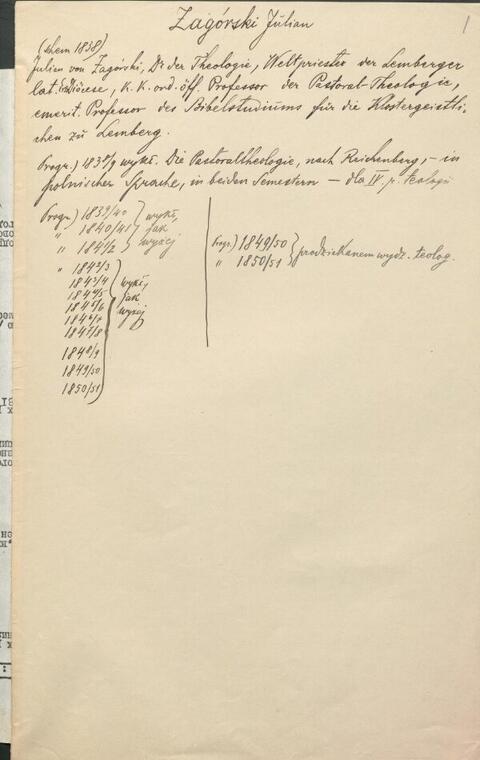 Zagórski Julian
1
(Schem 1838)
Julian von Zagórski, Dr der Theologie, Weltpriester der Lemberger
lat. Erzdiöcese, K. K. ord. öff. Professor der Pastoral-Theologie,
emerit. Professor des Bibelstudiums für die Klostergeistli-
chen zu Lemberg.
Progr.) 1838/9 wykł. Die Pastoraltheologie, nach Reichenberg, – in
polnischer Sprache, in beiden Semestern – dla IV r. teologii
Progr.) 1839/40 wykł,
" 1840/41 jak
" 1841/2 wyżej
" 1842/3
1843/4 wykł,
1844/5 jak
1845/6 wyżej
1846/7
1847/8
1848/9
1849/50
1850/51
Progr.) 1849/50 prodziekanem wydz. teolog.
" 1850/51